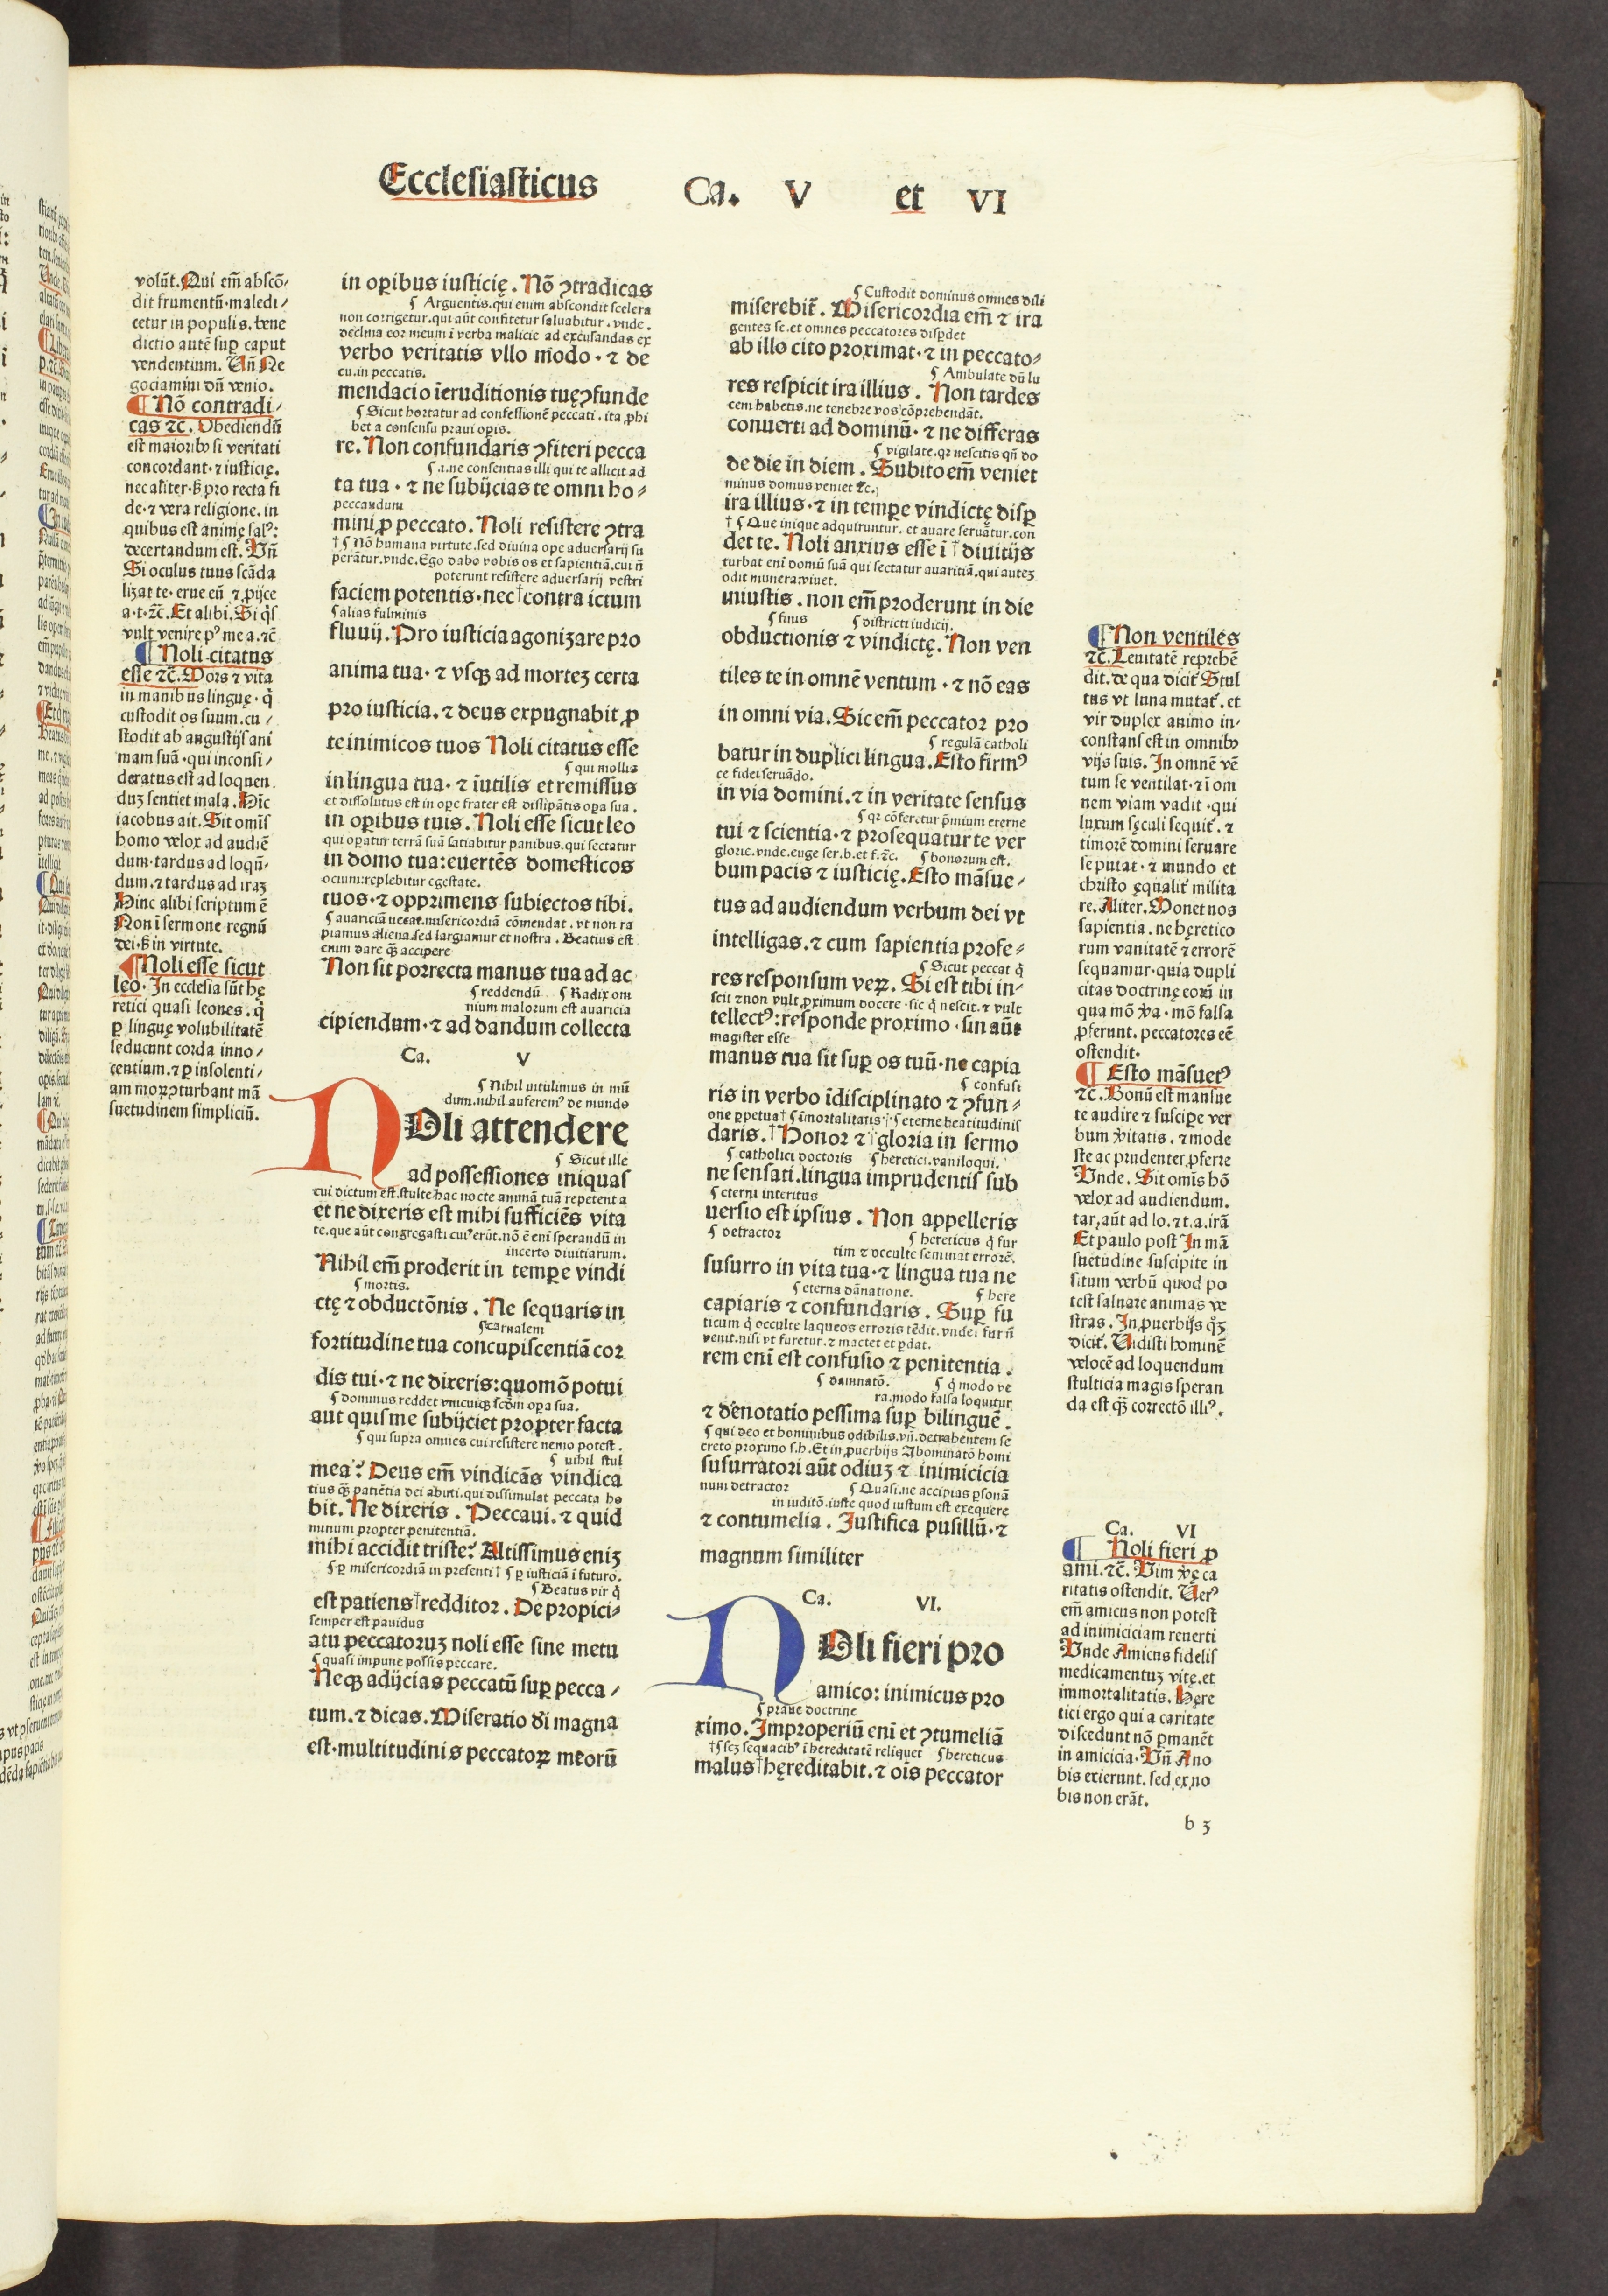 Ecclesiasticus Ca. V et VI
volūt. Qui em̄ abscō/
dit frumentū·maledi/
cetur in populis. bene
dictio autē suꝑ caput
vendentium. Un̄ Ne
gociamini dū venio.
¶ Nō contradi/
cas ⁊c̄. Obediendū
est maioribꝰ si veritati
concordant·⁊ iusticię.
nec aliter·ſꝫ pro recta fi
de·⁊ vera religione. in
quibus est animę salꝰ:
decertandum est. Vn̄
Si oculus tuus scāda
lizat te· erue eū ⁊ ꝓijce
a·t·⁊c̄. Et alibi. Si q̄s
vult venire pꝰ me a.⁊c̄
¶ Noli citatus
esse ⁊c̄. Mors ⁊ vita
in manibus linguę· q̄
custodit os suum. cu/
stodit ab angustijs ani
mam suā·qui inconsi/
deratus est ad loquen
duꝫ sentiet mala. Hīc
iacobus ait. Sit omīs
homo velox ad audiē
dum·tardus ad loqū-
dum.⁊ tardus ad iraꝫ
Hinc alibi scriptum ē
Non ī sermone regnū
dei·ſꝫ in virtute.
¶ Noli esse sicut
leo. In ecclesia sūt hę
retici quasi leones. q̄
ꝑ linguę volubilitatē
seducunt corda inno/
centium.⁊ ꝑ insolenti/
am moꝝ ꝯturbant mā
suetudinem simpliciū.
in oꝑibus iusticię. Nō ꝯtradicas
¶ Arguentis.qui enim abscondit scelera
non corrigetur.qui aūt confitetur saluabitur. vnde.
declina cor meum ī verba malicie ad excusandas ex
verbo veritatis vllo modo·⁊ de
cu.in peccatis.
mendacio īeruditionis tuę ꝯfunde
¶ Sicut hortatur ad confessionē peccati. ita ꝓhi
bet a consensu praui oꝑis.
re. Non confundaris ꝯfiteri pecca
¶ .i.ne consentias illi qui te allicit ad
ta tua·⁊ ne subijcias te omni ho⸗
peccandum
mini ꝓ peccato. Noli resistere ꝯtra
† ¶ Nō humana virtute.sed diuina ope aduersarij su
perātur.vnde.Ego dabo vobis os et sapientiā.cui n̄
poterunt resistere aduersarij vestri
faciem potentis·nec†contra ictum
¶ alias fulminis
fluuij. Pro iusticia agonizare pro
anima tua·⁊ vsqꝫ ad morteꝫ certa
pro iusticia.⁊ deus expugnabit ꝓ
te inimicos tuos Noli citatus esse
¶ qui mollis
in lingua tua·⁊ īutilis et remissus
et dissolutus est in oꝑe frater est dissipātis oꝑa sua.
in oꝑibus tuis. Noli esse sicut leo
qui oꝑatur terrā suā satiabitur panibus.qui sectatur
in domo tua:euertēs domesticos
ocium:replebitur egestate.
tuos·⁊ opprimens subiectos tibi.
¶ auariciā uetat.misericordiā cōmendat. vt non ra
piamus aliena.sed largiamur et nostra. Beatius est
enim dare qꝫ accipere
Non sit porrecta manus tua ad ac
¶ reddendū ¶ Radix om
nium malorum est auaricia
cipiendum·⁊ ad dandum collecta
Ca. V
¶ Nihil intulimus in mū
dum.nihil auferemꝰ de mundo
NOli attendere
¶ Sicut ille
ad possessiones iniquas
cui dictum est.stulte hac nocte animā tuā repetent a
et ne dixeris est mihi sufficiēs vita
te.que aūt congregasti cuiꝰ erūt.nō ē enī sperandū in
incerto diuitiarum.
Nihil em̄ proderit in tempe vindi
¶ mortis.
ctę ⁊ obductōnis. Ne sequaris in
¶ carnalem
fortitudine tua concupiscentiā cor
dis tui·⁊ ne dixeris:quomō potui
¶ dominus reddet vnicuiqꝫ scd̄m oꝑa sua.
aut quis me subijciet propter facta
¶ qui supra omnes cui resistere nemo potest.
¶ nihil stul
mea? Deus em̄ vindicās vindica
tius qꝫ patiētia dei abuti.qui dissimulat peccata ho
bit. Ne dixeris. Peccaui.⁊ quid
minum propter penitentiā.
mihi accidit triste? Altissimus eniꝫ
¶ ꝑ misericordiā in presenti† ¶ ꝑ iusticiā ī futuro.
¶ Beatus vir q̄
est patiens†redditor. De propici⸗
semper est pauidus
atu peccatoruꝫ noli esse sine metu
¶ quasi impune possis peccare.
Neqꝫ adijcias peccatū suꝑ pecca/
tum.⁊ dicas. Miseratio dī magna
est·multitudinis peccatoꝝ meorū
¶ Custodit dominus omnes dili
miserebit̄. Misericordia em̄ ⁊ ira
gentes se.et omnes peccatores disꝑdet
ab illo cito proximat·⁊ in peccato⸗
¶ Ambulate dū lu
res respicit ira illius. Non tardes
cem habetis.ne tenebre vos cōprehendāt.
conuerti ad dominū·⁊ ne differas
¶ vigilate.qꝛ nescitis qn̄ do
de die in diem. Subito em̄ veniet
minus domus veniet ⁊c.
ira illius·⁊ in tempe vindictę disꝑ
† ¶ Que inique adquiruntur. et auare seruātur.con
det te. Noli anxius esse ī †diuitijs
turbat enī domū suā qui sectatur auaritiā.qui auteꝫ
odit munera viuet.
iniustis. non em̄ proderunt in die
¶ finis ¶ districti iudicij.
obductionis ⁊ vindictę. Non ven
tiles te in omnē ventum·⁊ nō eas
in omni via. Sic em̄ peccator pro
¶ regulā catholi
batur in duplici lingua. Esto firmꝰ
ce fidei seruādo.
in via domini.⁊ in veritate sensus
¶ qꝛ cōferetur p̄mium eterne
tui ⁊ scientia·⁊ prosequatur te ver
glorie.vnde.euge ser.b.et f.⁊c. ¶ bonorum est.
bum pacis ⁊ iusticię. Esto māsue/
tus ad audiendum verbum dei vt
intelligas.⁊ cum sapientia profe⸗
¶ Sicut peccat q̄
res responsum veꝝ. Si est tibi in⸗
scit ⁊ non vult ꝓximum docere·sic q̄ nescit.⁊ vult
tellectꝰ:responde proximo·sin aūt
magister esse
manus tua sit suꝑ os tuū·ne capia
¶ confusi
ris in verbo īdisciplinato ⁊ ꝯfun⸗
one ꝑpetua† ¶ īmortalitatis ¶ eterne beatitudinis
daris.†Honor ⁊†gloria in sermo
¶ catholici doctoris ¶ heretici.vaniloqui.
ne sensati.lingua imprudentis sub
¶ eterni interitus
uersio est ipsius. Non appelleris
¶ detractor ¶ hereticus q̄ fur
tim ⁊ occulte seminat errorē.
susurro in vita tua·⁊ lingua tua ne
¶ eterna dānatione. ¶ here
capiaris ⁊ confundaris. Suꝑ fu
ticum q̄ occulte laqueos erroris tēdit.vnde: fur n̄
venit.nisi vt furetur.⁊ mactet et ꝑdat.
rem enī est confusio ⁊ penitentia.
¶ damnatō. ¶ q̄ modo ve
ra.modo falsa loquitur
⁊ dēnotatio pessima suꝑ bilinguē.
¶ qui deo et hominibus odibilis.vn̄.detrahentem se
creto proximo s.h. Et in ꝓuerbijs Abominatō homi
susurratori aūt odiuꝫ ⁊ inimicicia
num detractor ¶ Quasi.ne accipias ꝑsonā
in iuditō.iuste quod iustum est exequere
⁊ contumelia. Justifica pusillū·⁊
magnum similiter
Ca. VI.
NOli fieri pro
amico: inimicus pro
¶ praue doctrine
ximo. Improperiū enī et ꝯtumeliā
† ¶ scꝫ sequacibꝰ ī hereditatē reliquet ¶ hereticus
malus†hęreditabit.⁊ oīs peccator
¶ Non ventiles
⁊c̄. Leuitatē reprehē
dit.de qua dicit̄ Stul
tus vt luna mutat̄. et
vir duplex animo in-
constans est in omnibꝰ
vijs suis. In omnē vē
tum se ventilat·⁊ ī om
nem viam vadit·qui
luxum sęculi sequit̄. ⁊
timorē domini seruare
se putat·⁊ mundo et
christo ęqualit̄ milita
re. Aliter. Monet nos
sapientia. ne hęretico
rum vanitatē ⁊ errorē
sequamur·quia dupli
citas doctrinę eorū in
qua mō v̄a·mō falsa
ꝓferunt. peccatores eē
ostendit.
¶ Esto māsuetꝰ
⁊c̄. Bonū est mansue
te audire ⁊ suscipe ver
bum v̄itatis. ⁊ mode
ste ac prudenter ꝓferre
Vnde. Sit omīs hō
velox ad audiendum.
tar.aūt ad lo.⁊ t.a.irā
Et paulo post In mā
suetudine suscipite in
situm verbū quod po
test saluare animas ve
stras. In ꝓuerbijs qꝫ
dicit̄. Uidisti hominē
velocē ad loquendum
stulticia magis speran
da est qꝫ correctō illiꝰ.
Ca. VI
¶ Noli fieri ꝓ
ami.⁊c̄. Uim v̄ę ca
ritatis ostendit. Uerꝰ
em̄ amicus non potest
ad inimiciciam reuerti
Vnde Amicus fidelis
medicamentuꝫ vitę.et
immortalitatis. Hęre
tici ergo qui a caritate
discedunt nō ꝑmanēt
in amicicia. Vn̄ A no
bis exierunt. sed ex no
bis non erāt.
b 3